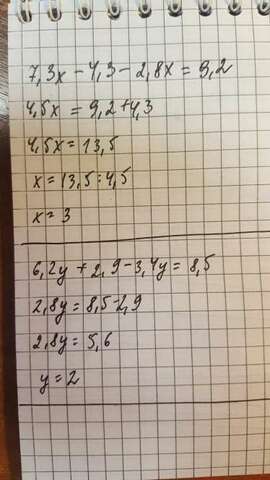 7,3x - 4,3 - 2,8x = 9,2
4,5x = 9,2 + 4,3
4,5x = 13,5
x = 13,5 : 4,5
x = 3
6,2y + 2,9 - 3,4y = 8,5
2,8y = 8,5 - 2,9
2,8y = 5,6
y = 2